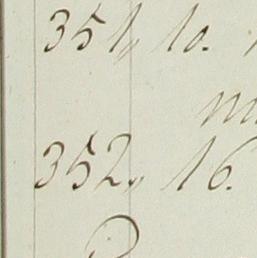 351, 10.
352, 16.